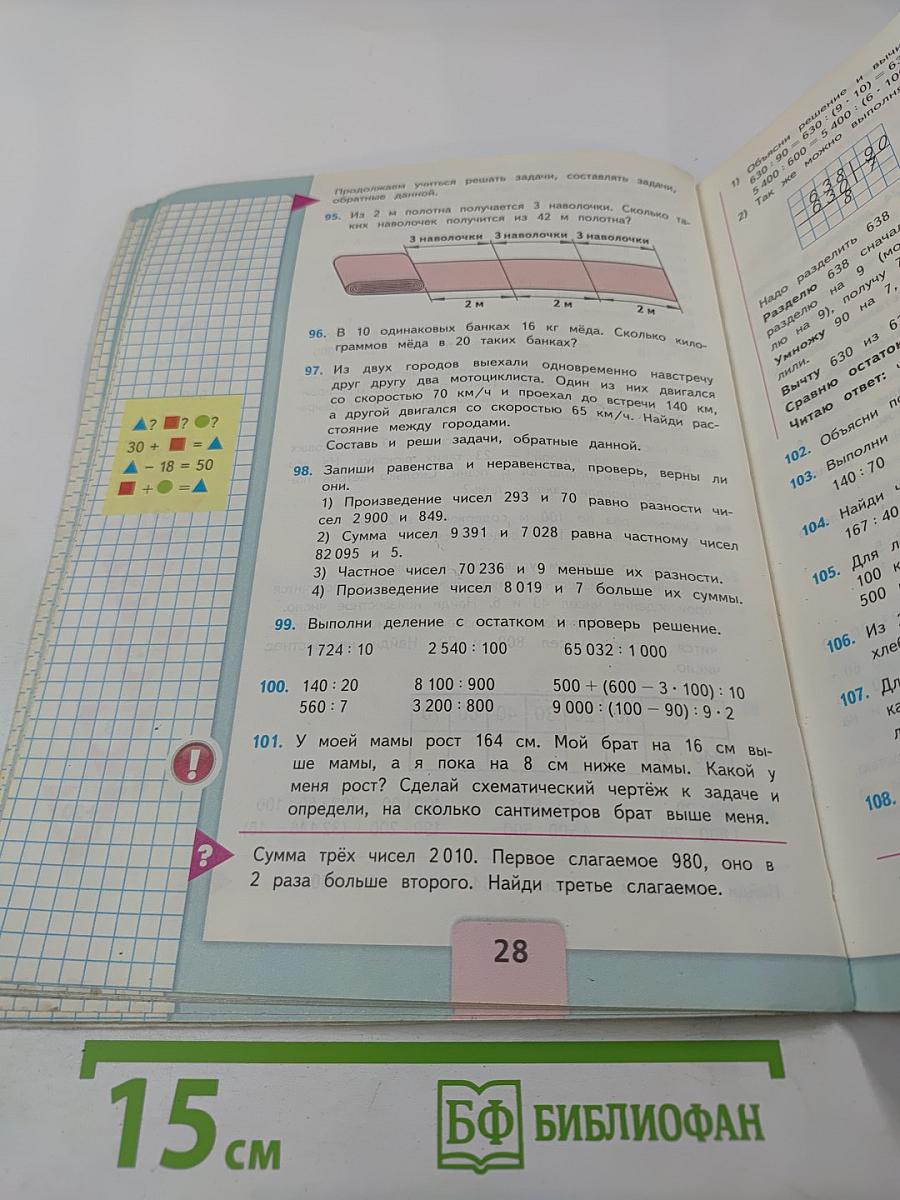 Продолжаем учиться решать задачи, составлять задачи,
обратные данной.
95. Из 2 м полотна получается 3 наволочки. Сколько та-
ких наволочек получится из 42 м полотна?
3 наволочки 3 наволочки 3 наволочки
2 м 2 м 2 м
96. В 10 одинаковых банках 16 кг мёда. Сколько кило-
граммов мёда в 20 таких банках?
97. Из двух городов выехали одновременно навстречу
друг другу два мотоциклиста. Один из них двигался
со скоростью 70 км/ч и проехал до встречи 140 км,
а другой двигался со скоростью 65 км/ч. Найди рас-
стояние между городами.
Составь и реши задачи, обратные данной.
▲? ■? ●?
30 + ■ = ▲
▲ − 18 = 50
■ + ● = ▲
98. Запиши равенства и неравенства, проверь, верны ли
они.
1) Произведение чисел 293 и 70 равно разности чи-
сел 2 900 и 849.
2) Сумма чисел 9 391 и 7 028 равна частному чисел
82 095 и 5.
3) Частное чисел 70 236 и 9 меньше их разности.
4) Произведение чисел 8 019 и 7 больше их суммы.
99. Выполни деление с остатком и проверь решение.
1 724 : 10 2 540 : 100 65 032 : 1 000
100. 140 : 20 8 100 : 900 500 + (600 − 3 · 100) : 10
560 : 7 3 200 : 800 9 000 : (100 − 90) : 9 · 2
101. У моей мамы рост 164 см. Мой брат на 16 см вы-
ше мамы, а я пока на 8 см ниже мамы. Какой у
меня рост? Сделай схематический чертёж к задаче и
определи, на сколько сантиметров брат выше меня.
!
?
Сумма трёх чисел 2 010. Первое слагаемое 980, оно в
2 раза больше второго. Найди третье слагаемое.
28
1) Объясни решение и
630 : 90 = 630 : (9 · 10) =
5 400 : 600 = 5 400 : (6 ·
2) Так же можно
638 90
630 7
8
Надо разделить 638
Разделю 638
разделю на 9
лю на 9), получу
Умножу 90 на 7,
лили.
Вычту 630 из
Сравню остаток
Читаю ответ:
102. Объясни
103. Выполни
140 : 70
104. Найди
167 : 40
105. Для
100
500
106. Из
107.
108.
15 см
БФ БИБЛИОФАН